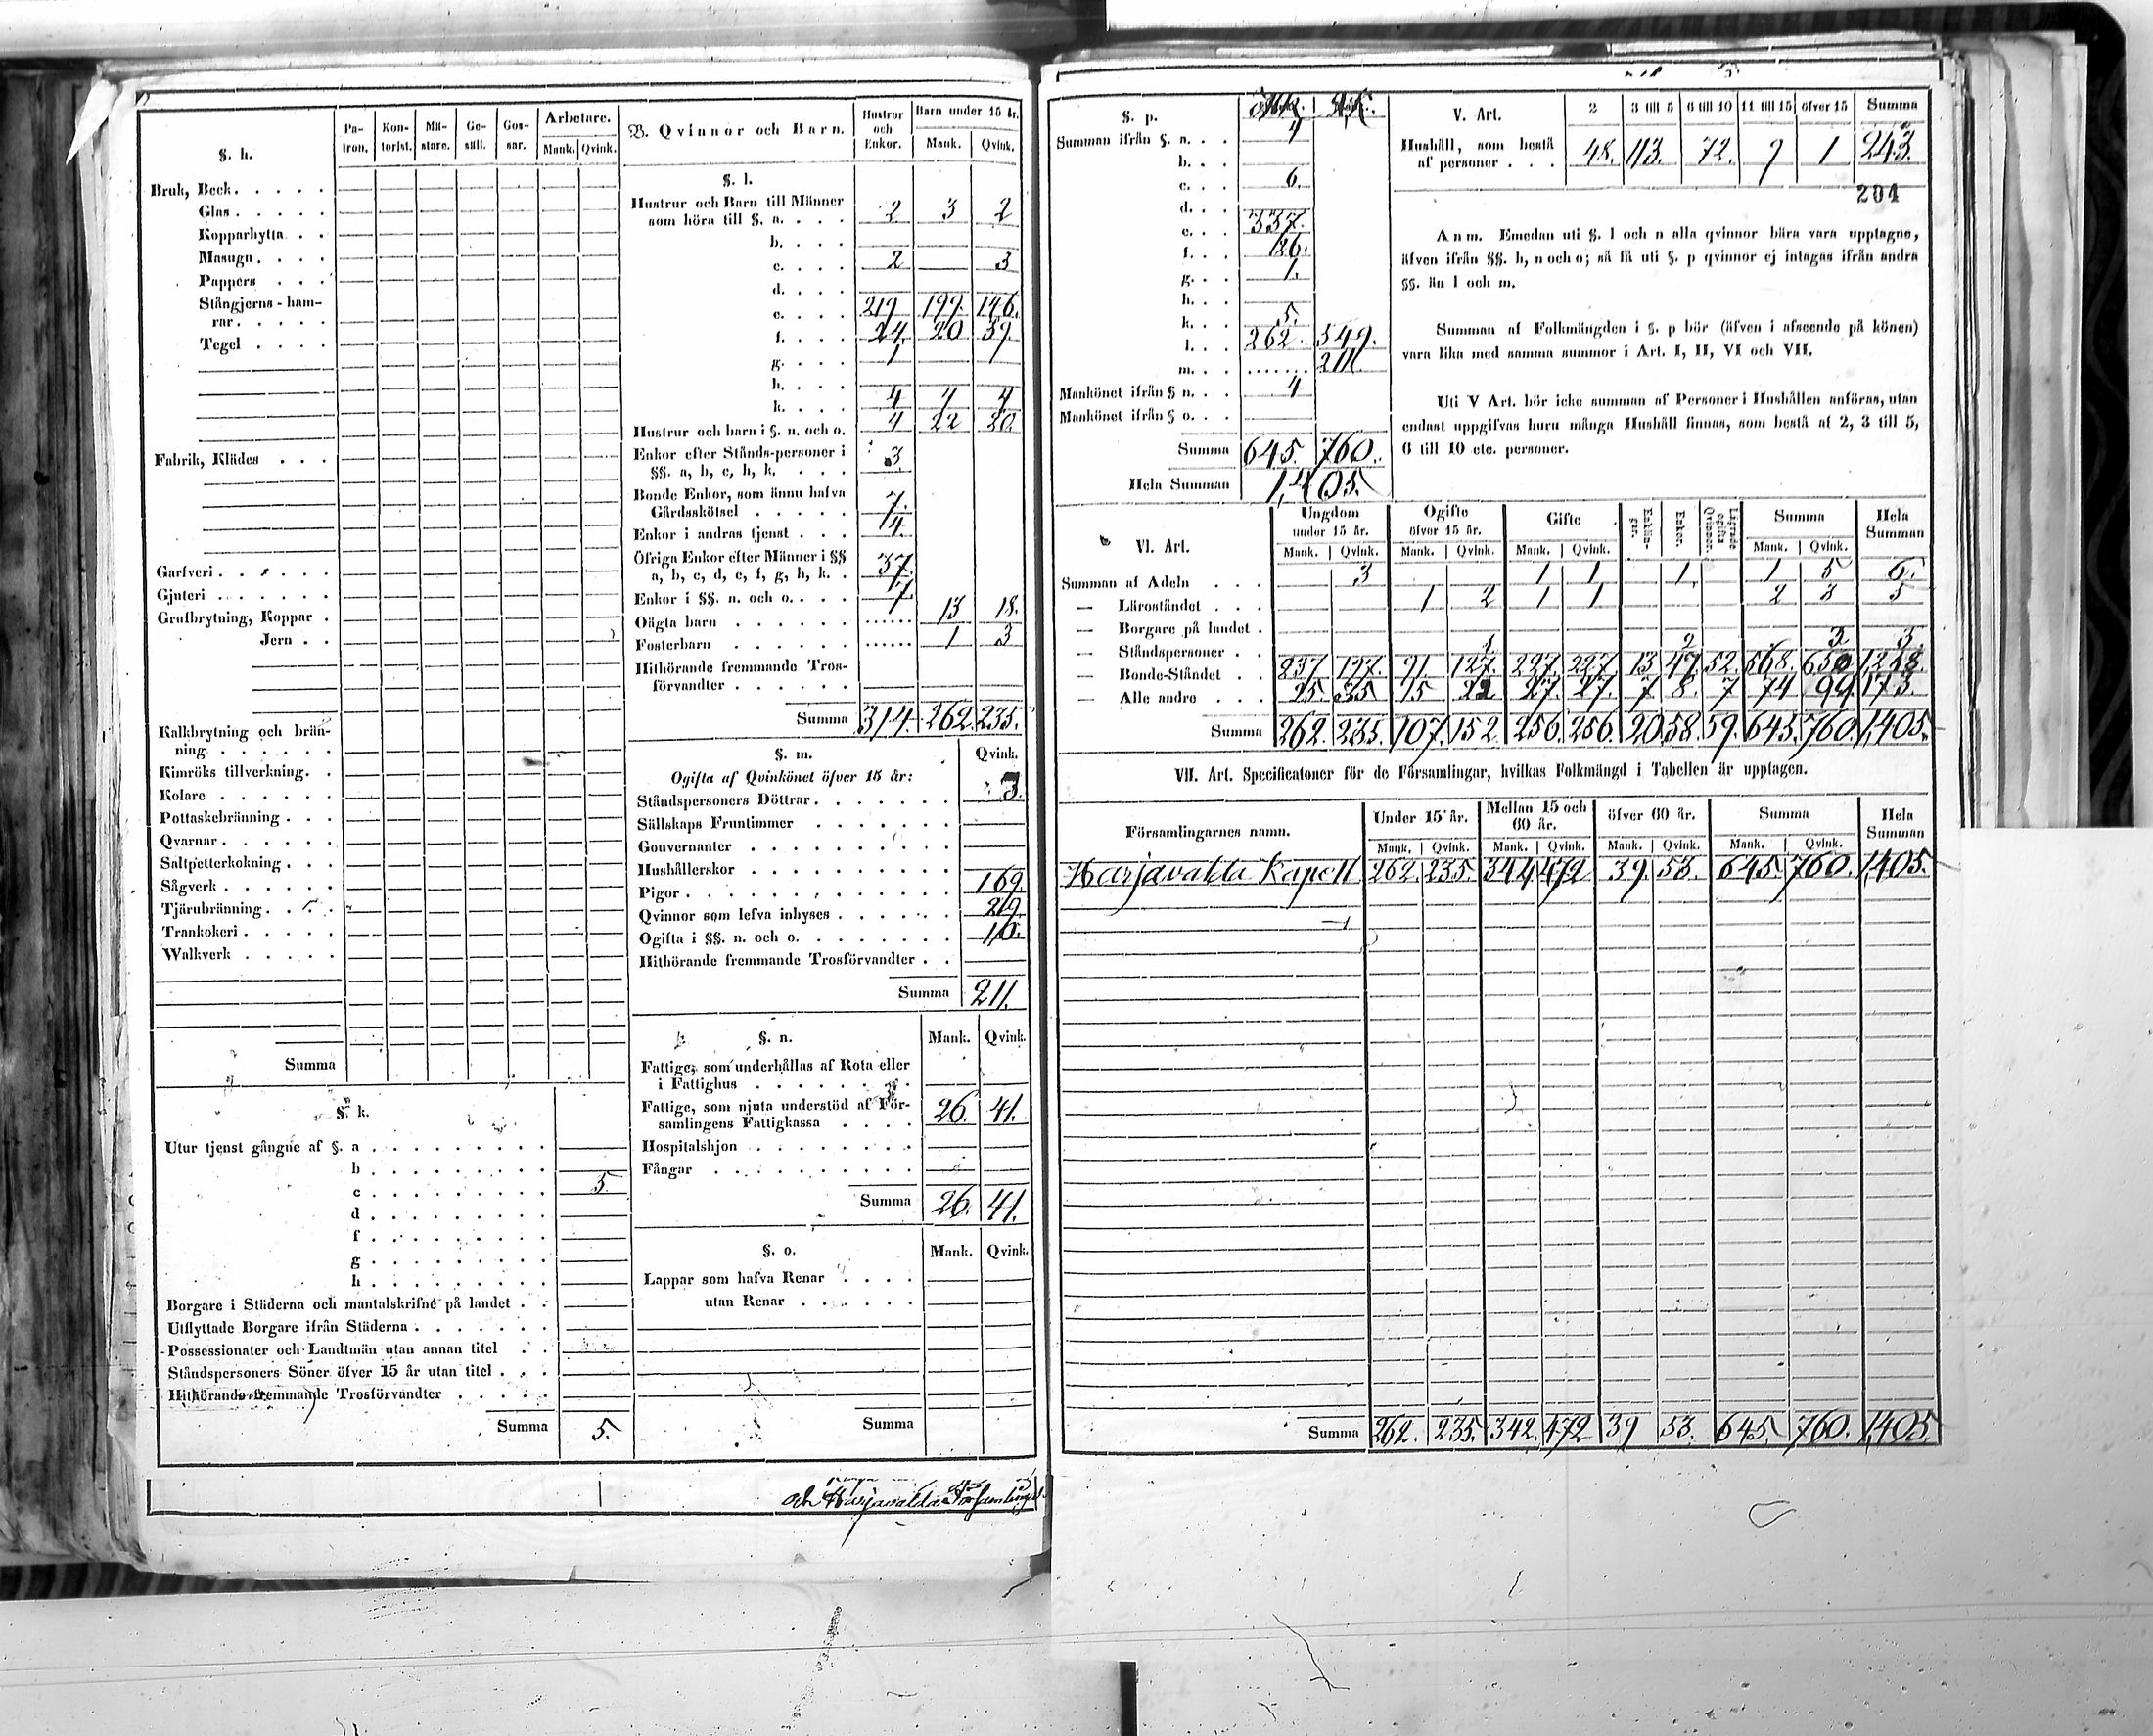 §. h.
Pa-tron. Kon-torist. Mä-stare. Ge-säll. Gos-sar. Arbetare. Mank. Qvink.
Bruk, Beck
Glas
Kopparhytta
Masugn
Pappers
Stångjerns-ham-
rar
Tegel
Fabrik, Klädes
Garfveri
Gjuteri
Grufbrytning, Koppar
Jern
Kalkbrytning och brän-
ning
Kimröks tillverkning
Kolare
Pottaskebränning
Qvarnar
Saltpetterkokning
Sågverk
Tjärubränning
Trankokeri
Walkverk
Summa
§. k.
Utur tjenst gångne af §. a
b
c 5.
d
f
g
h
Borgare i Städerna och mantalskrifne på landet
Utflyttade Borgare ifrån Städerna
Possessionater och Landtmän utan annan titel
Ståndspersoners Söner öfver 15 år utan titel
Hithörande fremmande Trosförvandter
Summa 5.
B. Qvinnor och Barn.
Hustror och Enkor. Barn under 15 år. Mank. Qvink.
§. l.
Hustrur och Barn till Männer
som höra till §. a. 2 3 2
b.
c. 2 3
d.
e. 219 199. 146.
f. 24. 20 39.
g. 1 1
h.
k. 4 4 4
Hustrur och barn i §. n. och o. 4 22 20.
Enkor efter Stånds-personer i
§§. a, b, c, h, k. 3.
Bonde Enkor, som ännu hafva
Gårdsskötsel 7.
Enkor i andras tjenst 4.
Öfriga Enkor efter Männer i §§
a, b, c, d, e, f, g, h, k. 37.
Enkor i §§. n. och o.
Oägta barn 13 18.
Fosterbarn 1 3
Hithörande fremmande Tros-
förvandter
Summa 314. 262. 235.
§. m. Qvink.
Ogifta af Qvinkönet öfver 15 år:
Ståndspersoners Döttrar 3.
Sällskaps Fruntimmer
Gouvernanter
Hushållerskor
Pigor 169.
Qvinnor som lefva inhyses 29.
Ogifta i §§. n. och o. 10.
Hithörande fremmande Trosförvandter
Summa 211.
§. n. Mank. Qvink.
Fattige, som underhållas af Rota eller
i Fattighus
Fattige, som njuta understöd af För-
samlingens Fattigkassa 26. 41.
Hospitalshjon
Fångar
Summa 26. 41.
§. o. Mank. Qvink.
Lappar som hafva Renar
utan Renar
Summa
och Harjavalda Församlingar
§. p.
Summan ifrån §. a. 4
b.
c. 6.
d.
e. 337.
f. 26.
g. 1.
h.
k. 5.
l. 262. 549.
m. 211.
Mankönet ifrån § n. 4
Mankönet ifrån § o.
Summa 645. 760.
Hela Summan 1,405.
V. Art. 2 3 till 5 6 till 10 11 till 15 öfver 15 Summa
Hushåll, som bestå
af personer 48. 113. 72. 9 1 243.
204
Anm. Emedan uti §. l och n alla qvinnor böra vara upptagne,
äfven ifrån §§. h, n och o; så få uti §. p qvinnor ej intagas ifrån andra
§§. än l och m.
Summan af Folkmängden i §. p bör (äfven i afseende på könen)
vara lika med samma summor i Art. I, II, VI och VII.
Uti V Art. bör icke summan af Personer i Hushållen anföras, utan
endast uppgifvas huru många Hushåll finnas, som bestå af 2, 3 till 5,
6 till 10 etc. personer.
VI. Art.
Ungdom under 15 år. Ogifte öfver 15 år. Gifte Enklin-gar. Enkor. Lägrade ogifta Qvinnor. Summa Hela Summan
Mank. Qvink. Mank. Qvink. Mank. Qvink. Mank. Qvink.
Summan af Adeln 3 1 1 1. 1 5 6.
— Läroståndet 1 2 1 1 2 3 5
— Borgare på landet
— Ståndspersoner 1 2 3 3.
— Bonde-Ståndet 237 197. 91 127. 227. 227. 13 47. 52. 568. 650 1218.
— Alle andre 25. 35 15 22 27. 27. 7 8. 7 74 99. 173.
Summa 262. 235. 107. 152. 256. 256. 20. 58. 59. 645. 760. 1,405.
VII. Art. Specificatoner för de Församlingar, hvilkas Folkmängd i Tabellen är upptagen.
Församlingarnes namn. Under 15 år. Mellan 15 och 60 år. öfver 60 år. Summa Hela Summan
Mank. Qvink. Mank. Qvink. Mank. Qvink. Mank. Qvink.
Harjavalda Kapell 262. 235. 344 472 39. 53. 645. 760. 1,405.
Summa 262. 235. 342. 472 39 53. 645. 760. 1,405.